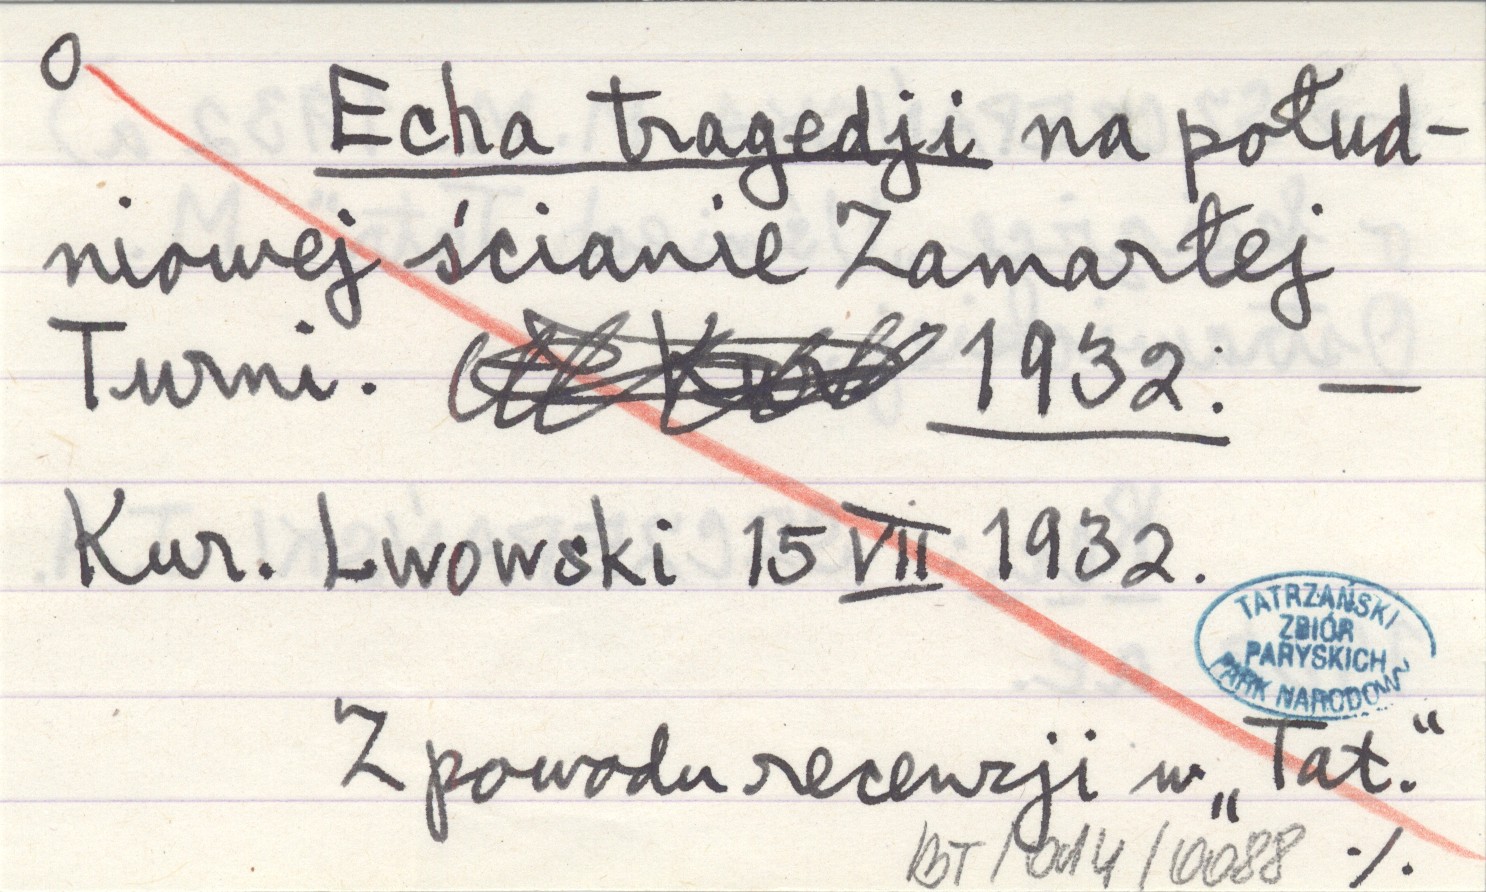 O
Echa tragedji na połud-
niowej ścianie Zamarłej
Turni. 1932: —
Kur. Lwowski 15 VII 1932.
TATRZAŃSKI
ZBIÓR
PARYSKICH
PARK NARODOWY
Z powodu recenzji w „Tat.“
BT/014/0088 ./.